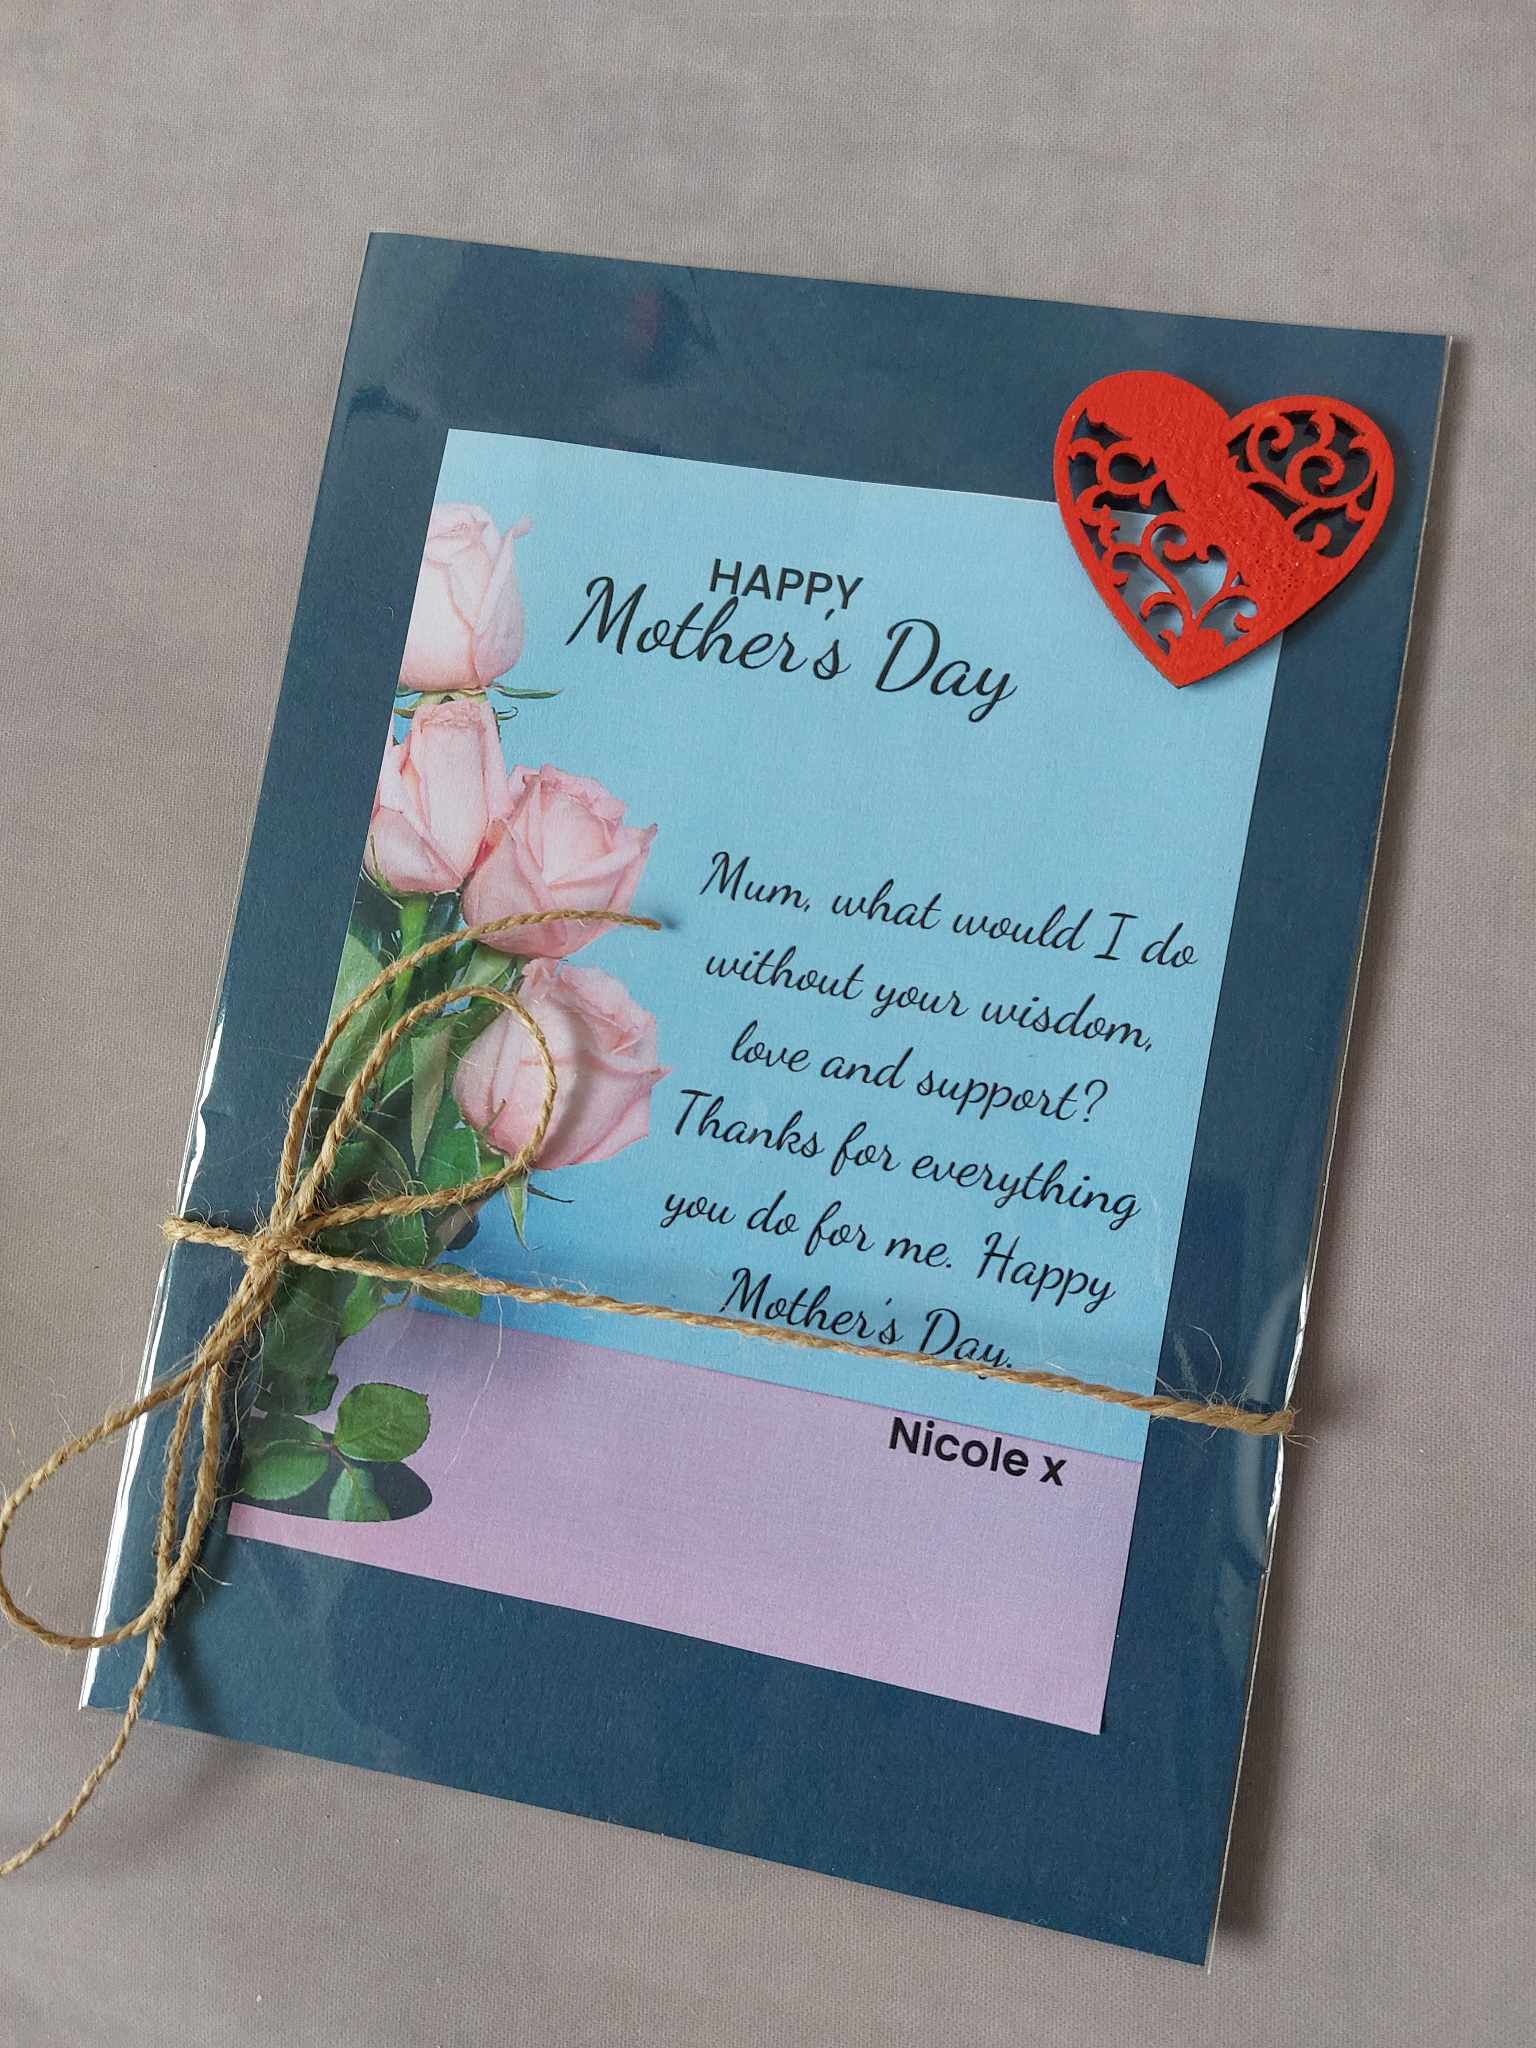 HAPPY
Mother's Day
Mum, what would I do
without your wisdom,
love and support?
Thanks for everything
you do for me. Happy
Mother's Day.
Nicole x